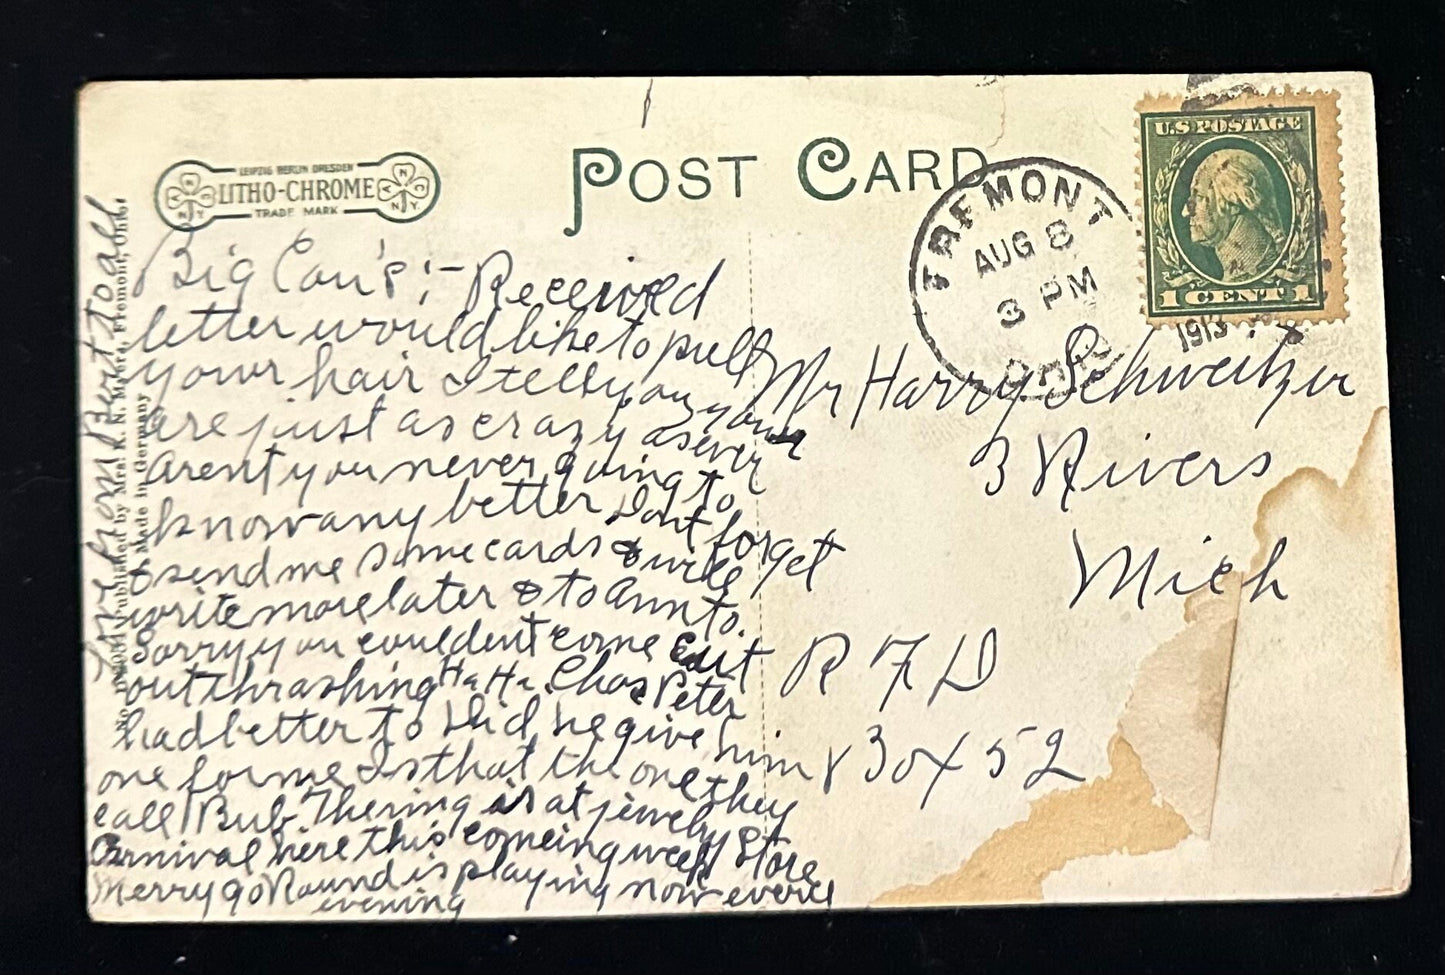 LEIPZIG BERLIN DRESDEN
LITHO-CHROME
TRADE MARK
POST CARD
FREMONT
AUG 8
3 PM
OHIO
1913
U.S. POSTAGE
1 CENT 1
Big Cou's:- Received
letter would like to pull
your hair I tell you your
are just as crazy as ever
arent you never going to
know any better Dont forget
to send me some cards & will
write more later & to Ann to.
Sorry you couldent come out
out thrashing Ha Ha. Chas Peter
had better to did, he give him
one for me Is that the one they
call Bub. The ring is at jewelry Store
Carnival here this comeing week
Merry go Round is playing now every
evening
Love from Bert to all
Published by Mrs. Fremont, Ohio
Made in Germany
Mr Harry Schweitzer
3 Rivers
Mich
R F D
30 x 52